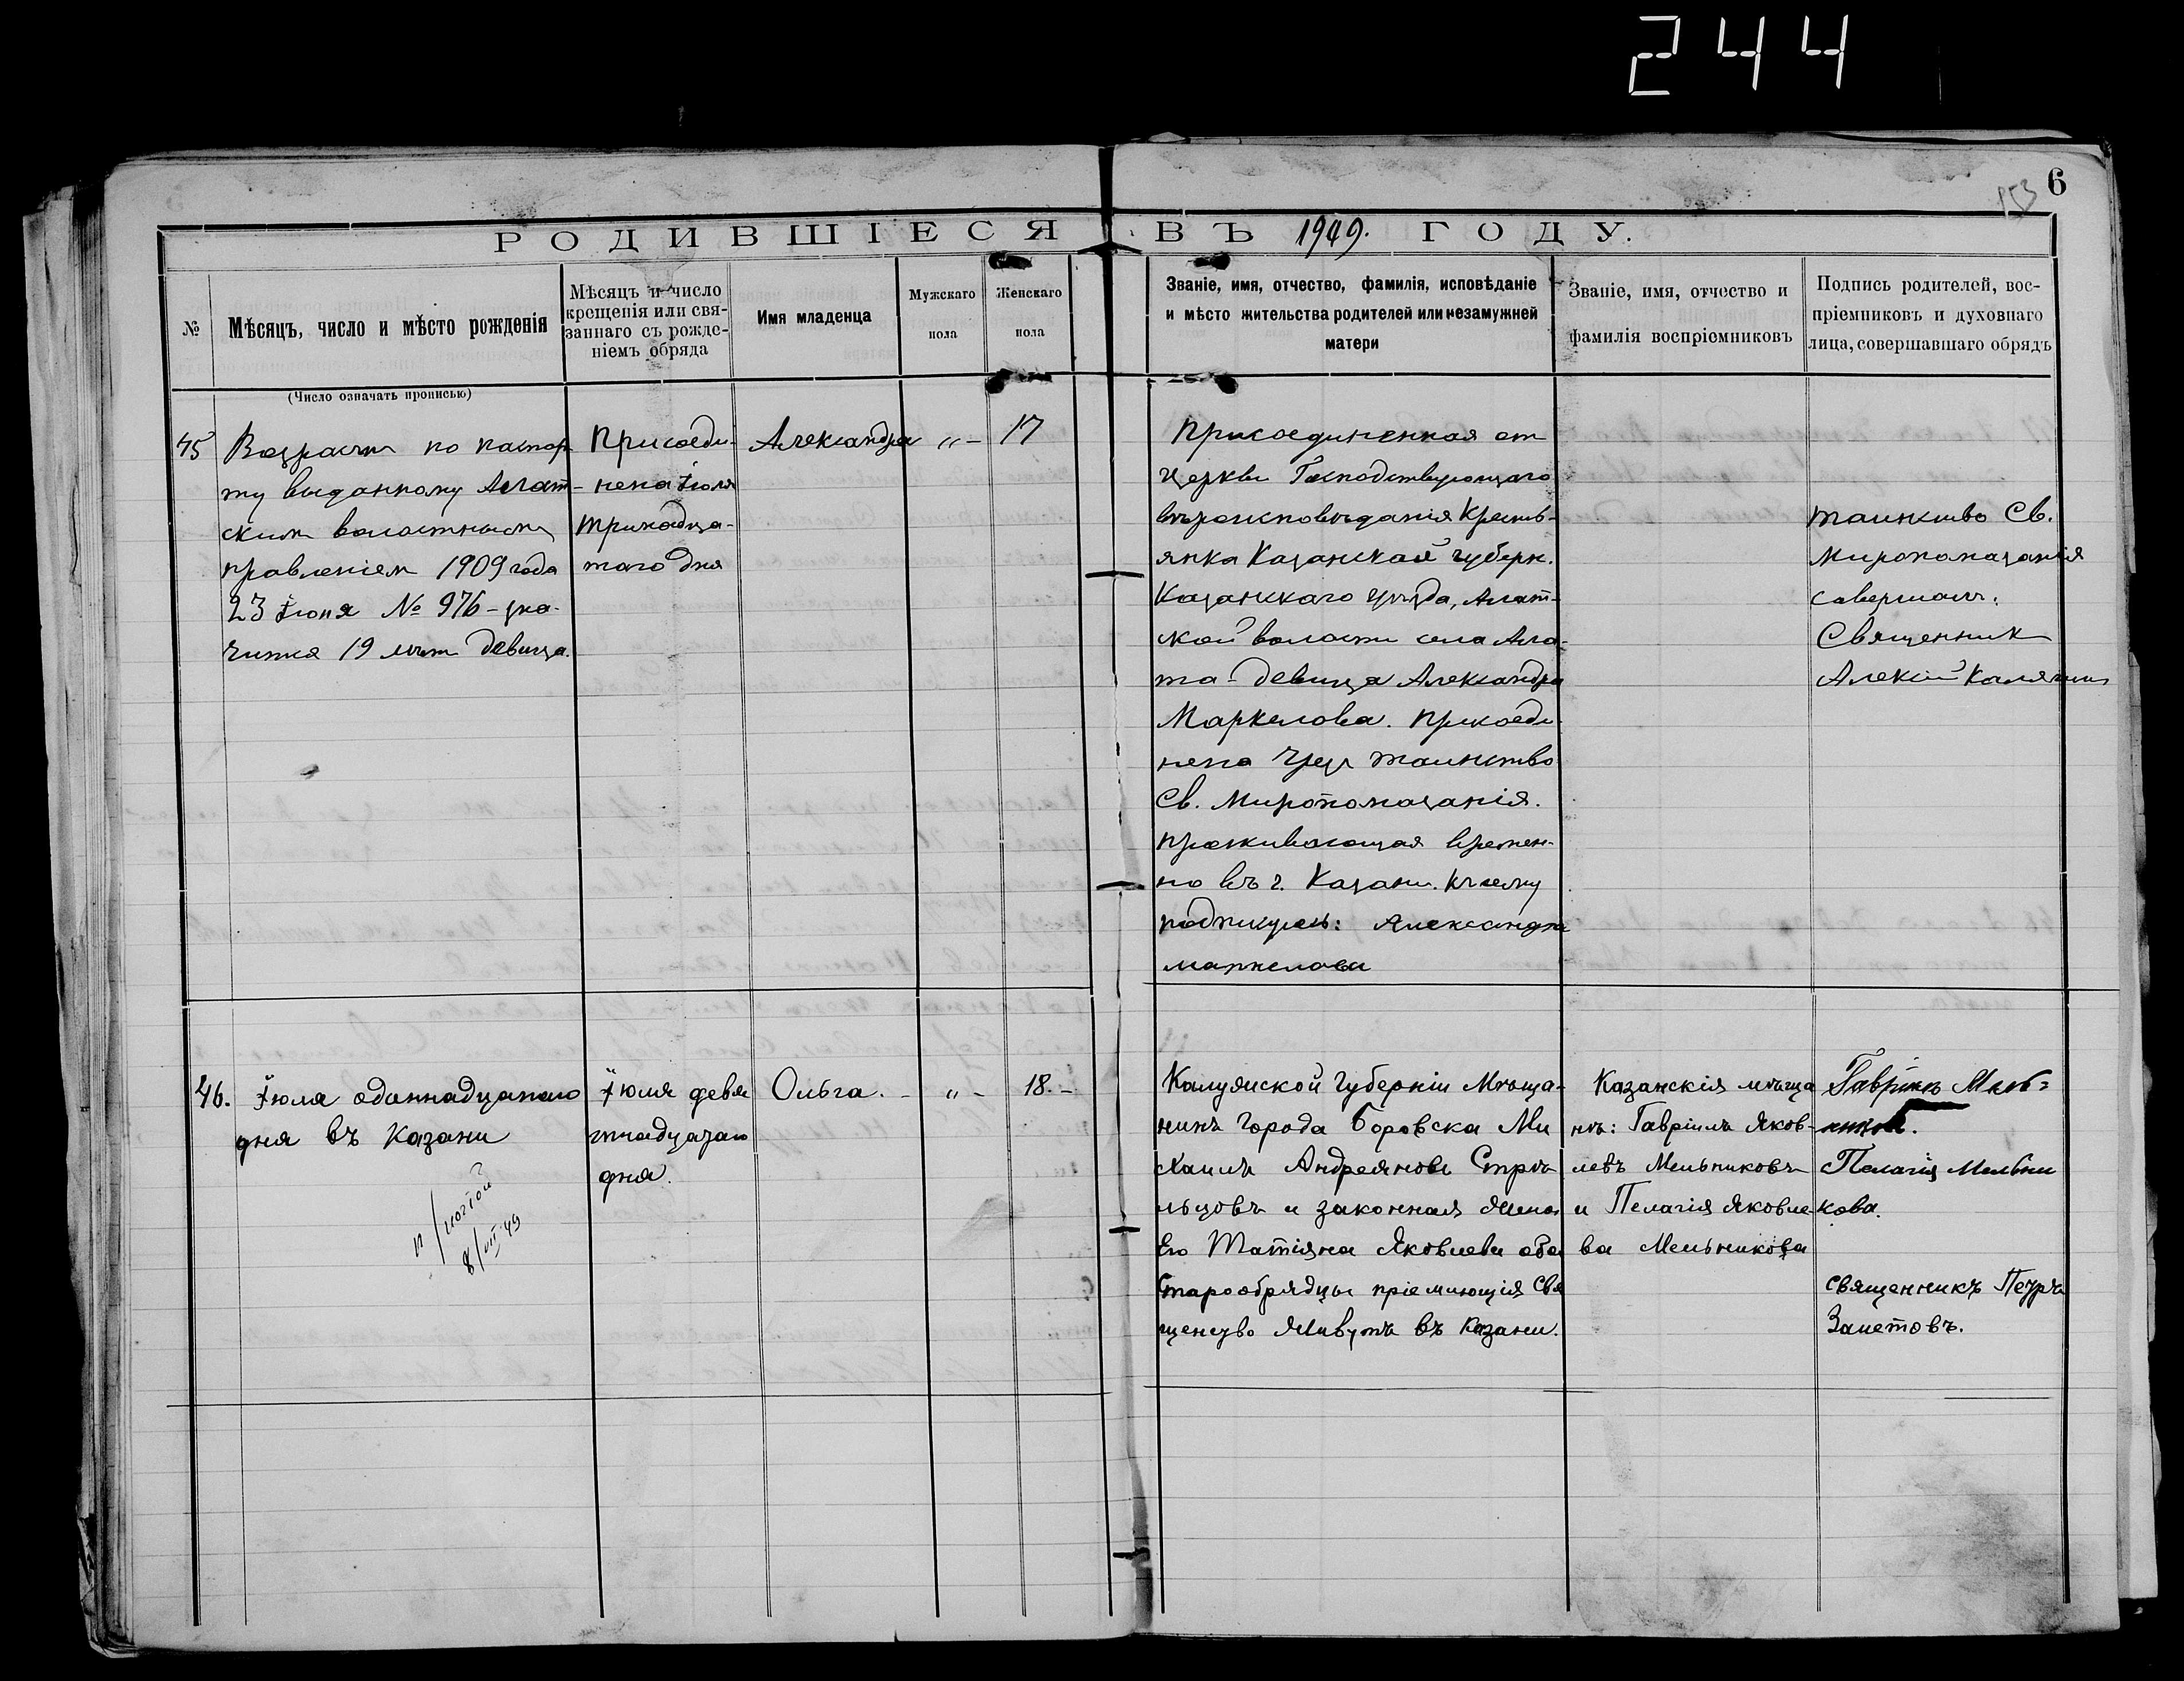 244
6
153
РОДИВШІЕСЯ ВЪ 1909. ГОДУ.
№
Мѣсяцъ, число и мѣсто рожденія
Мѣсяцъ и число
крещенія или свя-
заннаго съ рожде-
ніемъ обряда
Имя младенца
Мужскаго
пола
Женскаго
пола
Званіе, имя, отчество, фамилія, исповѣданіе
и мѣсто жительства родителей или незамужней
матери
Званіе, имя, отчество и
фамилія воспріемниковъ
Подпись родителей, вос-
пріемниковъ и духовнаго
лица, совершавшаго обрядъ
(Число означать прописью)
45
Возрастъ по паспор
ту выданному Алат-
скимъ волостнымъ
правленіем 1909 года
23 Іюня № 976 - зна-
чится 19 лѣт девица.
Присоеди-
нена Іюля
тринадца-
таго дня
Александра
„ -
17
Присоединенная от
Церкви Господствующаго
вѣроисповѣданія Кресть-
янка Казанской губерн.
Казанскаго Уѣзда, Алат-
ской волости села Ала-
та - девица Александра
Маркелова. Присоеди-
нена чрез таинство
Св. Миропомазанія.
проживающая времен-
но въ г. Казани. Къ сему
подпису́сь: Александра
маркелова
таинство Св.
Миропомазанія
совершалъ:
Священник
Алексій Калягинъ
46.
Іюля одиннадцатаго
дня въ Казани
8/VII 49
Іюля девя
тнадцатаго
дня.
Ольга. -
„ -
18. -
Калужской Губерніи Мѣща-
нинъ города Боровска Ми
хаилъ Андреяновъ Стрѣ
льцовъ и законная жена
Его Татіяна Яковлева оба
Старообрядцы пріемлющія Свя
щенство Живутъ въ Казани.
Казанскія мѣща
нѣ: Гавріилъ Яков-
левъ Мельниковъ
и Пелагія Яковле-
ва Мельникова
Гавріилъ Мель-
никовъ.
Пелагія Мельни
кова.
священникъ Петръ
Залетовъ.